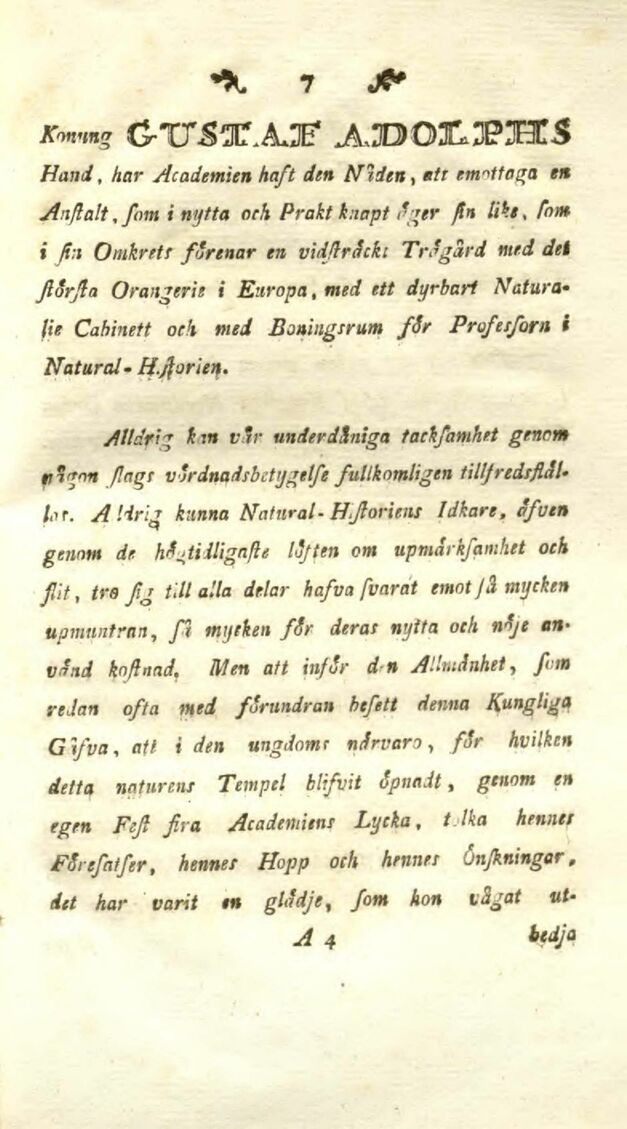 7
Konung GUSTAF ADOLPHS
Hand, har Academien haft den Nåden, att emottaga en
Anſtalt, ſom i nytta och Prakt knapt åger ſin like, ſom
i ſin Omkrets förenar en vidſträckt Trågård med det
ſtörſta Orangerie i Europa, med ett dyrbart Natura-
lie Cabinett och med Boningsrum för Profesſorn i
Natural-Hiſtorien.
Alldrig kan vår underdåniga tackſamhet genom
någon ſlags vördnadsbetygelſe fullkomligen tillfredsſtäl-
las. Aldrig kunna Natural-Hiſtoriens Idkare, äfven
genom de högtidligaſte löften om upmärkſamhet och
flit, tro ſig till alla delar hafva ſvarat emot ſå mycken
upmuntran, ſå mycken för deras nytta och nöje an-
vänd koſtnad. Men att inför den Allmänhet, ſom
redan ofta med förundran beſett denna Kungliga
Gåfva, att i den ungdoms närvaro, för hvilken
detta naturens Tempel blifvit öpnadt, genom en
egen Feſt fira Academiens Lycka, tolka hennes
Föreſatſer, hennes Hopp och hennes Önſkningar,
det har varit en glädje, ſom hon vågat ut-
A 4 bedja